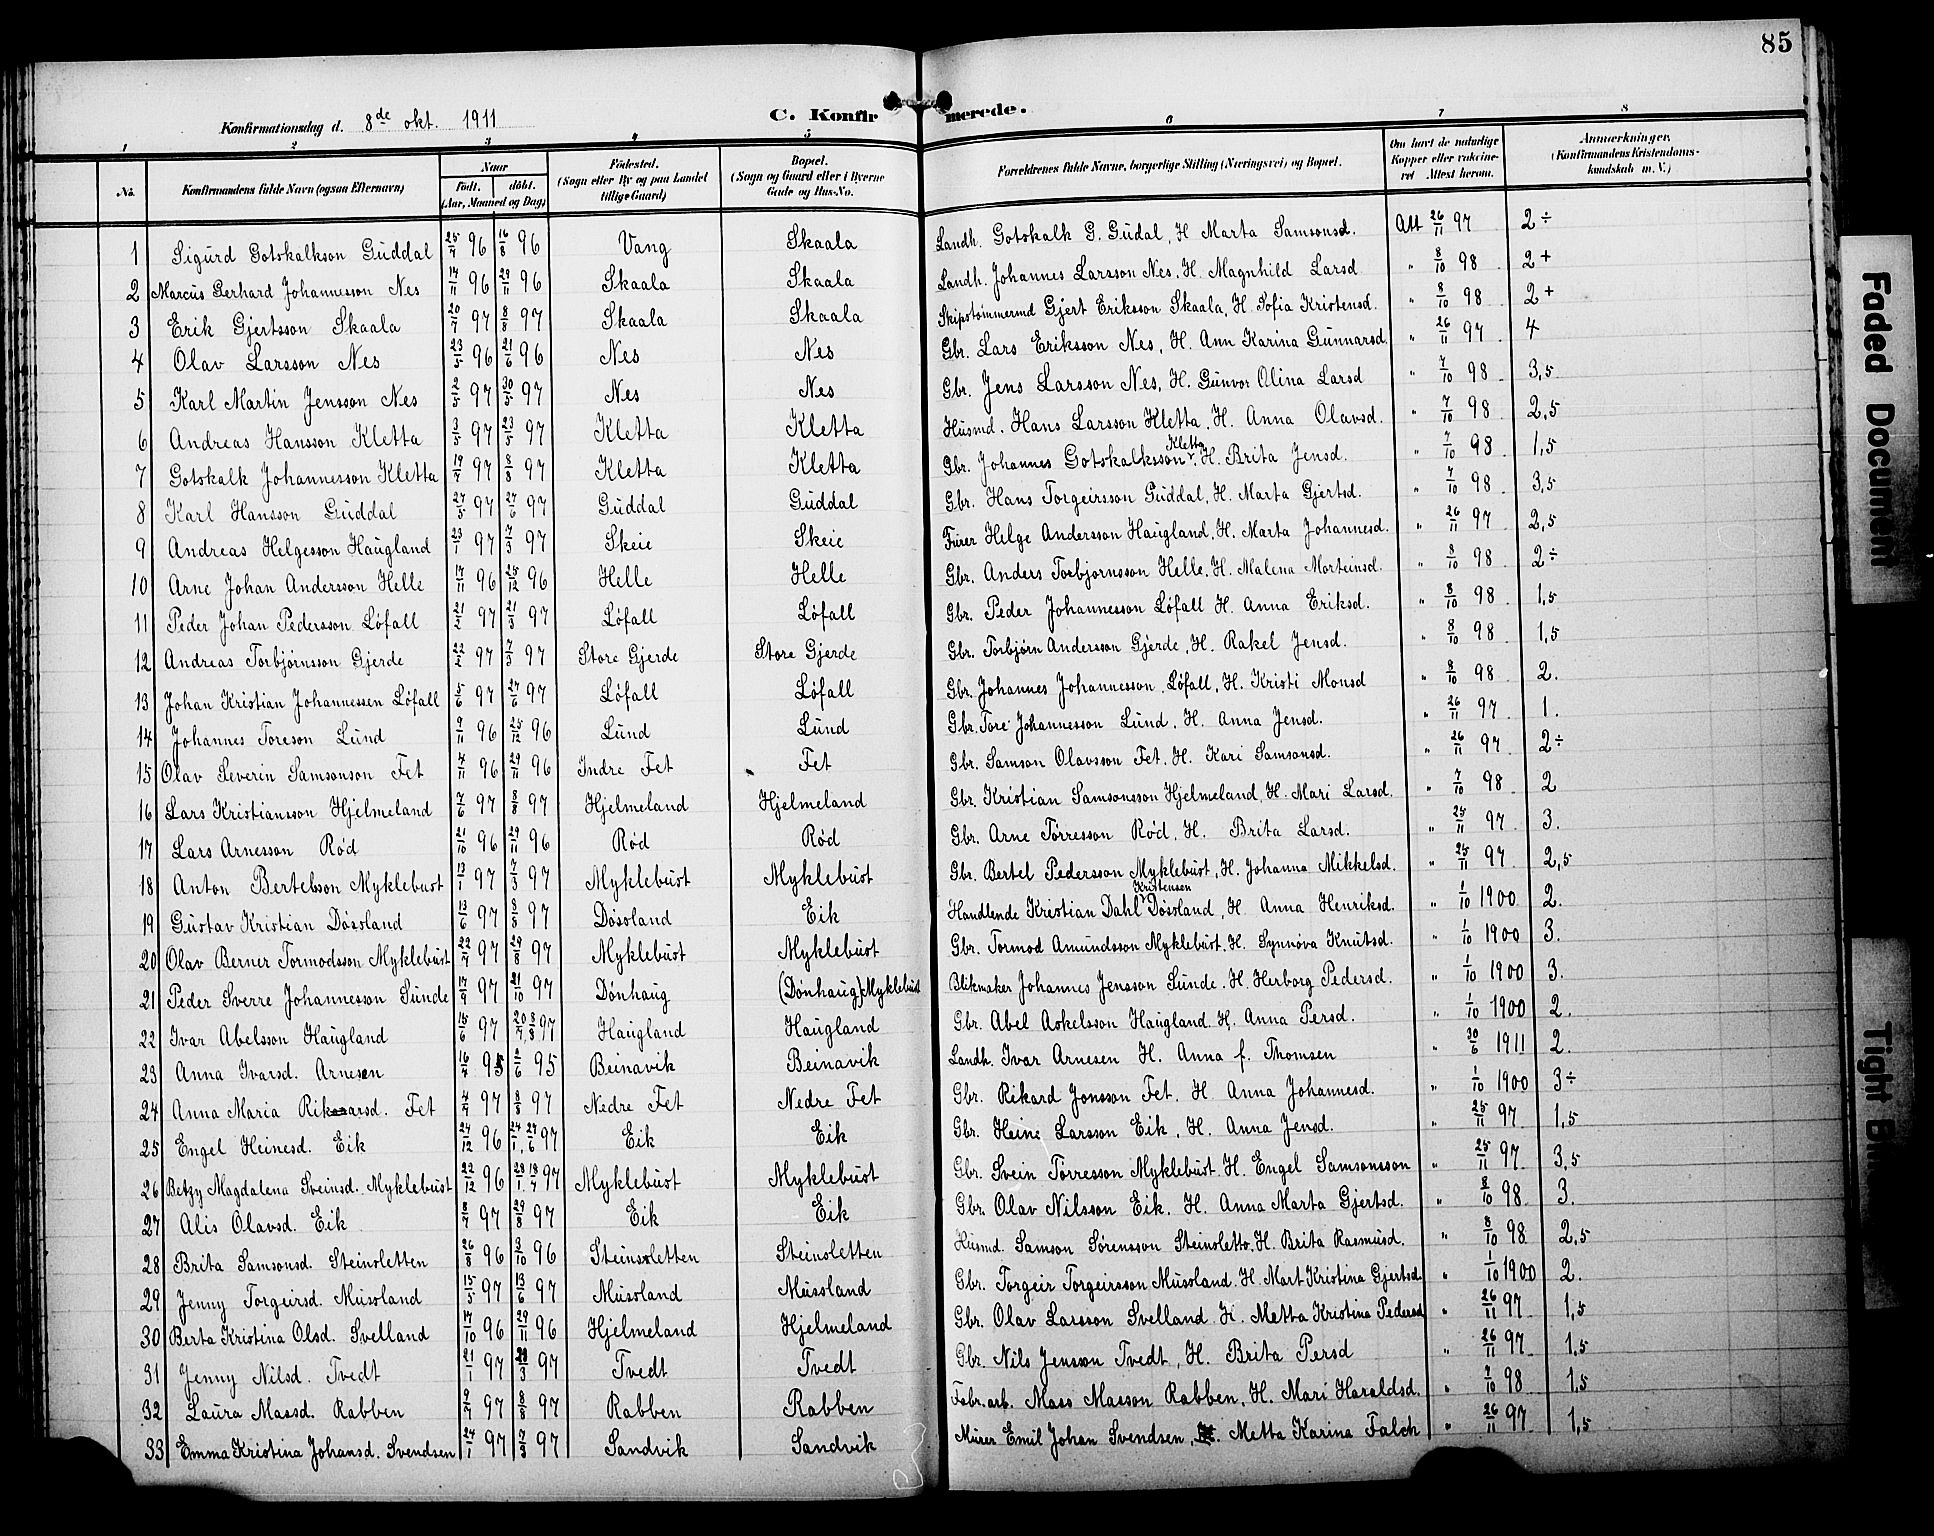 85
Konfirmationsdag d. 8de okt. 1911 C. Konfirmerede.
1 2 3 4 5 6 7 8
No. Konfirmandens fulde Navn (ogsaa Efternavn) Naar födt. döbt. (Aar, Maaned og Dag) Födested. (Sogn eller By og paa Landet tillige Gaard) Bopæl. (Sogn og Gaard eller i Byerne Gade og Hus-No.) Forældrenes fulde Navne, borgerlige Stilling (Næringsvei) og Bopæl. Om havt de naturlige Kopper eller vakcineret Attest herom. Anmærkninger. (Konfirmandens Kristendomskundskab m. V.)
1 Sigurd Gotskalkson Guddal 25/7 96 16/8 96 Vang Skaala Landh. Gotskalk G. Gudal, H Marta Samsonsd. Att 26/11 97 2÷
2 Marcus Gerhard Johannesson Nes 14/11 96 29/11 96 Skaala Skaala Landh. Johannes Larsson Nes, H. Magnhild Larsd " 8/10 98 2+
3 Erik Gjertsson Skaala 20/7 97 8/8 97 Skaala Skaala Skipstømmermd Gjert Eriksson Skaala, H. Sofia Kristensd. " 8/10 98 2+
4 Olav Larsson Nes 23/5 96 21/6 96 Nes Nes Gbr. Lars Eriksson Nes, H. Ann Karina Gunnarsd. " 26/11 97 4
5 Karl Martin Jensson Nes 2/5 97 30/5 97 Nes Nes Gbr. Jens Larsson Nes, H. Gunvor Olina Larsd " 7/10 98 3,5
6 Andreas Hansson Kletta 3/5 97 23/5 97 Kletta Kletta Husmd. Hans Larsson Kletta, H. Anna Olavsd. " 7/10 98 2,5
7 Gotskalk Johannesson Kletta 19/7 97 8/8 97 Kletta Kletta Gbr. Johannes Gotskalksson Kletta, H. Brita Jensd. " 7/10 98 1,5
8 Karl Hansson Guddal 27/5 97 27/6 97 Guddal Guddal Gbr. Hans Torgeirsson Guddal, H. Marta Gjertsd. " 7/10 98 3,5
9 Andreas Helgesson Haugland 23/1 97 7/3 97 Skeie Skeie Furer Helge Andersson Haugland, H. Marta Johannesd. " 26/11 97 2,5
10 Arne Johan Andersson Helle 17/11 96 25/12 96 Helle Helle Gbr. Anders Torbjørnsson Helle, H. Malena Morteinsd. " 8/10 98 2÷
11 Peder Johan Pedersson Løfall 21/2 97 21/3 97 Løfall Løfall Gbr. Peder Johannesson Løfall H. Anna Eriksd. " 8/10 98 1,5
12 Andreas Torbjørnsson Gjerde 22/2 97 7/3 97 Store Gjerde Store Gjerde Gbr. Torbjørn Andersson Gjerde, H. Rakel Jensd. " 8/10 98 1,5
13 Johan Kristian Johannessen Løfall 5/6 97 27/6 97 Løfall Løfall Gbr. Johannes Johannesson Løfall, H. Kristi Monsd " 8/10 98 2.
14 Johannes Toreson Lund 9/11 96 25/12 96 Lund Lund Gbr. Tore Johannesson Lund, H. Anna Jensd. " 26/11 97 1.
15 Olav Severin Samsonson Fet 4/11 96 29/11 96 Indre Fet Fet Gbr. Samson Olavsson Fet. H. Kari Samsonsd. " 26/11 97 2÷
16 Lars Kristiansson Hjelmeland 7/6 97 8/8 97 Hjelmeland Hjelmeland Gbr. Kristian Samsonsson Hjelmeland, H. Mari Larsd. " 7/10 98 2
17 Lars Arnesson Rød 21/10 96 29/11 96 Rød Rød Gbr. Arne Torresson Rød, H. Brita Larsd. " 25/11 97 3.
18 Anton Bertelsson Myklebust 13/1 97 7/3 97 Myklebust Myklebust Gbr. Bertel Pedersson Myklebust, H. Johanna Mikkelsd. " 25/11 97 2,5
19 Gustav Kristian Døssland 13/6 97 8/8 97 Døssland Eik Handlende Kristian Dahl Kristensen Døssland, H. Anna Henriksd. " 1/10 1900 2.
20 Olav Berner Tormodsson Myklebust 22/7 97 29/8 97 Myklebust Myklebust Gbr. Tormod Amundsson Myklebust. H. Synnøva Knutsd. " 1/10 1900 3.
21 Peder Sverre Johannesson Sunde 17/9 97 21/10 97 Dønhaug (Dønhaug) Myklebust Blikmaker Johannes Jensson Sunde. H. Herborg Pedersd. " 1/10 1900 3.
22 Ivar Abelsson Haugland 15/6 97 20/7, 8/8 97 Haugland Haugland Gbr. Abel Askelsson Haugland. H. Anna Persd. " 1/10 1900 2.
23 Anna Ivarsd. Arnesen 16/4 95 2/6 95 Beinavik Beinavik Landh. Ivar Arnesen H. Anna f. Thomsen " 30/6 1911 2.
24 Anna Maria Rikarsd. Fet 4/7 97 8/8 97 Nedre Fet Nedre Fet Gbr. Rikard Jonsson Fet. H. Anna Johannesd. " 1/10 1900 3÷
25 Engel Heinesd. Eik 24/12 96 24/1, 27/6 97 Eik Eik Gbr. Heine Larsson Eik, H. Anna Jensd. " 25/11 97 1,5
26 Betzy Magdalena Sveinsd. Myklebust 22/12 96 28/1, 18/7 97 Myklebust Myklebust Gbr. Svein Torresson Myklebust. H. Engel Samsonsson " 25/11 97 3,5
27 Alis Olavsd. Eik 8/7 97 29/8 97 Eik Eik Gbr. Olav Nilsson Eik. H. Anna Marta Gjertsd. " 8/10 98 3.
28 Brita Samsonsd. Steinsletten 26/8 96 3/10 96 Steinsletten Steinsletten Husmd. Samson Sørensson Steinsletto, H. Brita Rasmusd. " 8/10 98 2,5
29 Jenny Torgeirsd. Mussland 15/5 97 13/6 97 Mussland Mussland Gbr. Torgeir Torgeirsson Mussland. H. Mart Kristina Gjertsd. " 1/10 1900 2.
30 Berta Kristina Olsd. Svelland 17/10 96 29/11 96 Hjelmeland Hjelmeland Gbr. Olav Larsson Svelland. H. Metta Kristina Pedersd " 26/11 97 1,5
31 Jenny Nilsd. Tvedt 21/1 97 28/3 97 Tvedt Tvedt Gbr. Nils Jensson Tvedt, H. Brita Persd " 26/11 97 1,5
32 Laura Massd. Rabben 9/7 97 8/8 97 Rabben Rabben Fabr.arb. Mass Masson Rabben, H. Mari Haraldsd. " 7/10 98 1,5
33 Emma Kristina Johansd. Svendsen 24/1 97 7/3 97 Sandvik Sandvik Murer Emil Johan Svendsen, Metta Karina Falch " 26/11 97 1,5
Faded Document
Tight